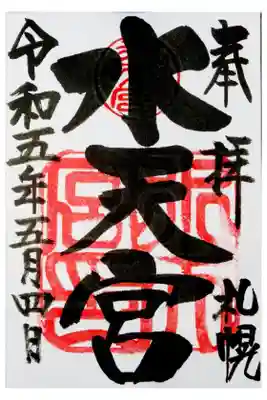 奉拝
札幌
水天宮
令和五年五月四日